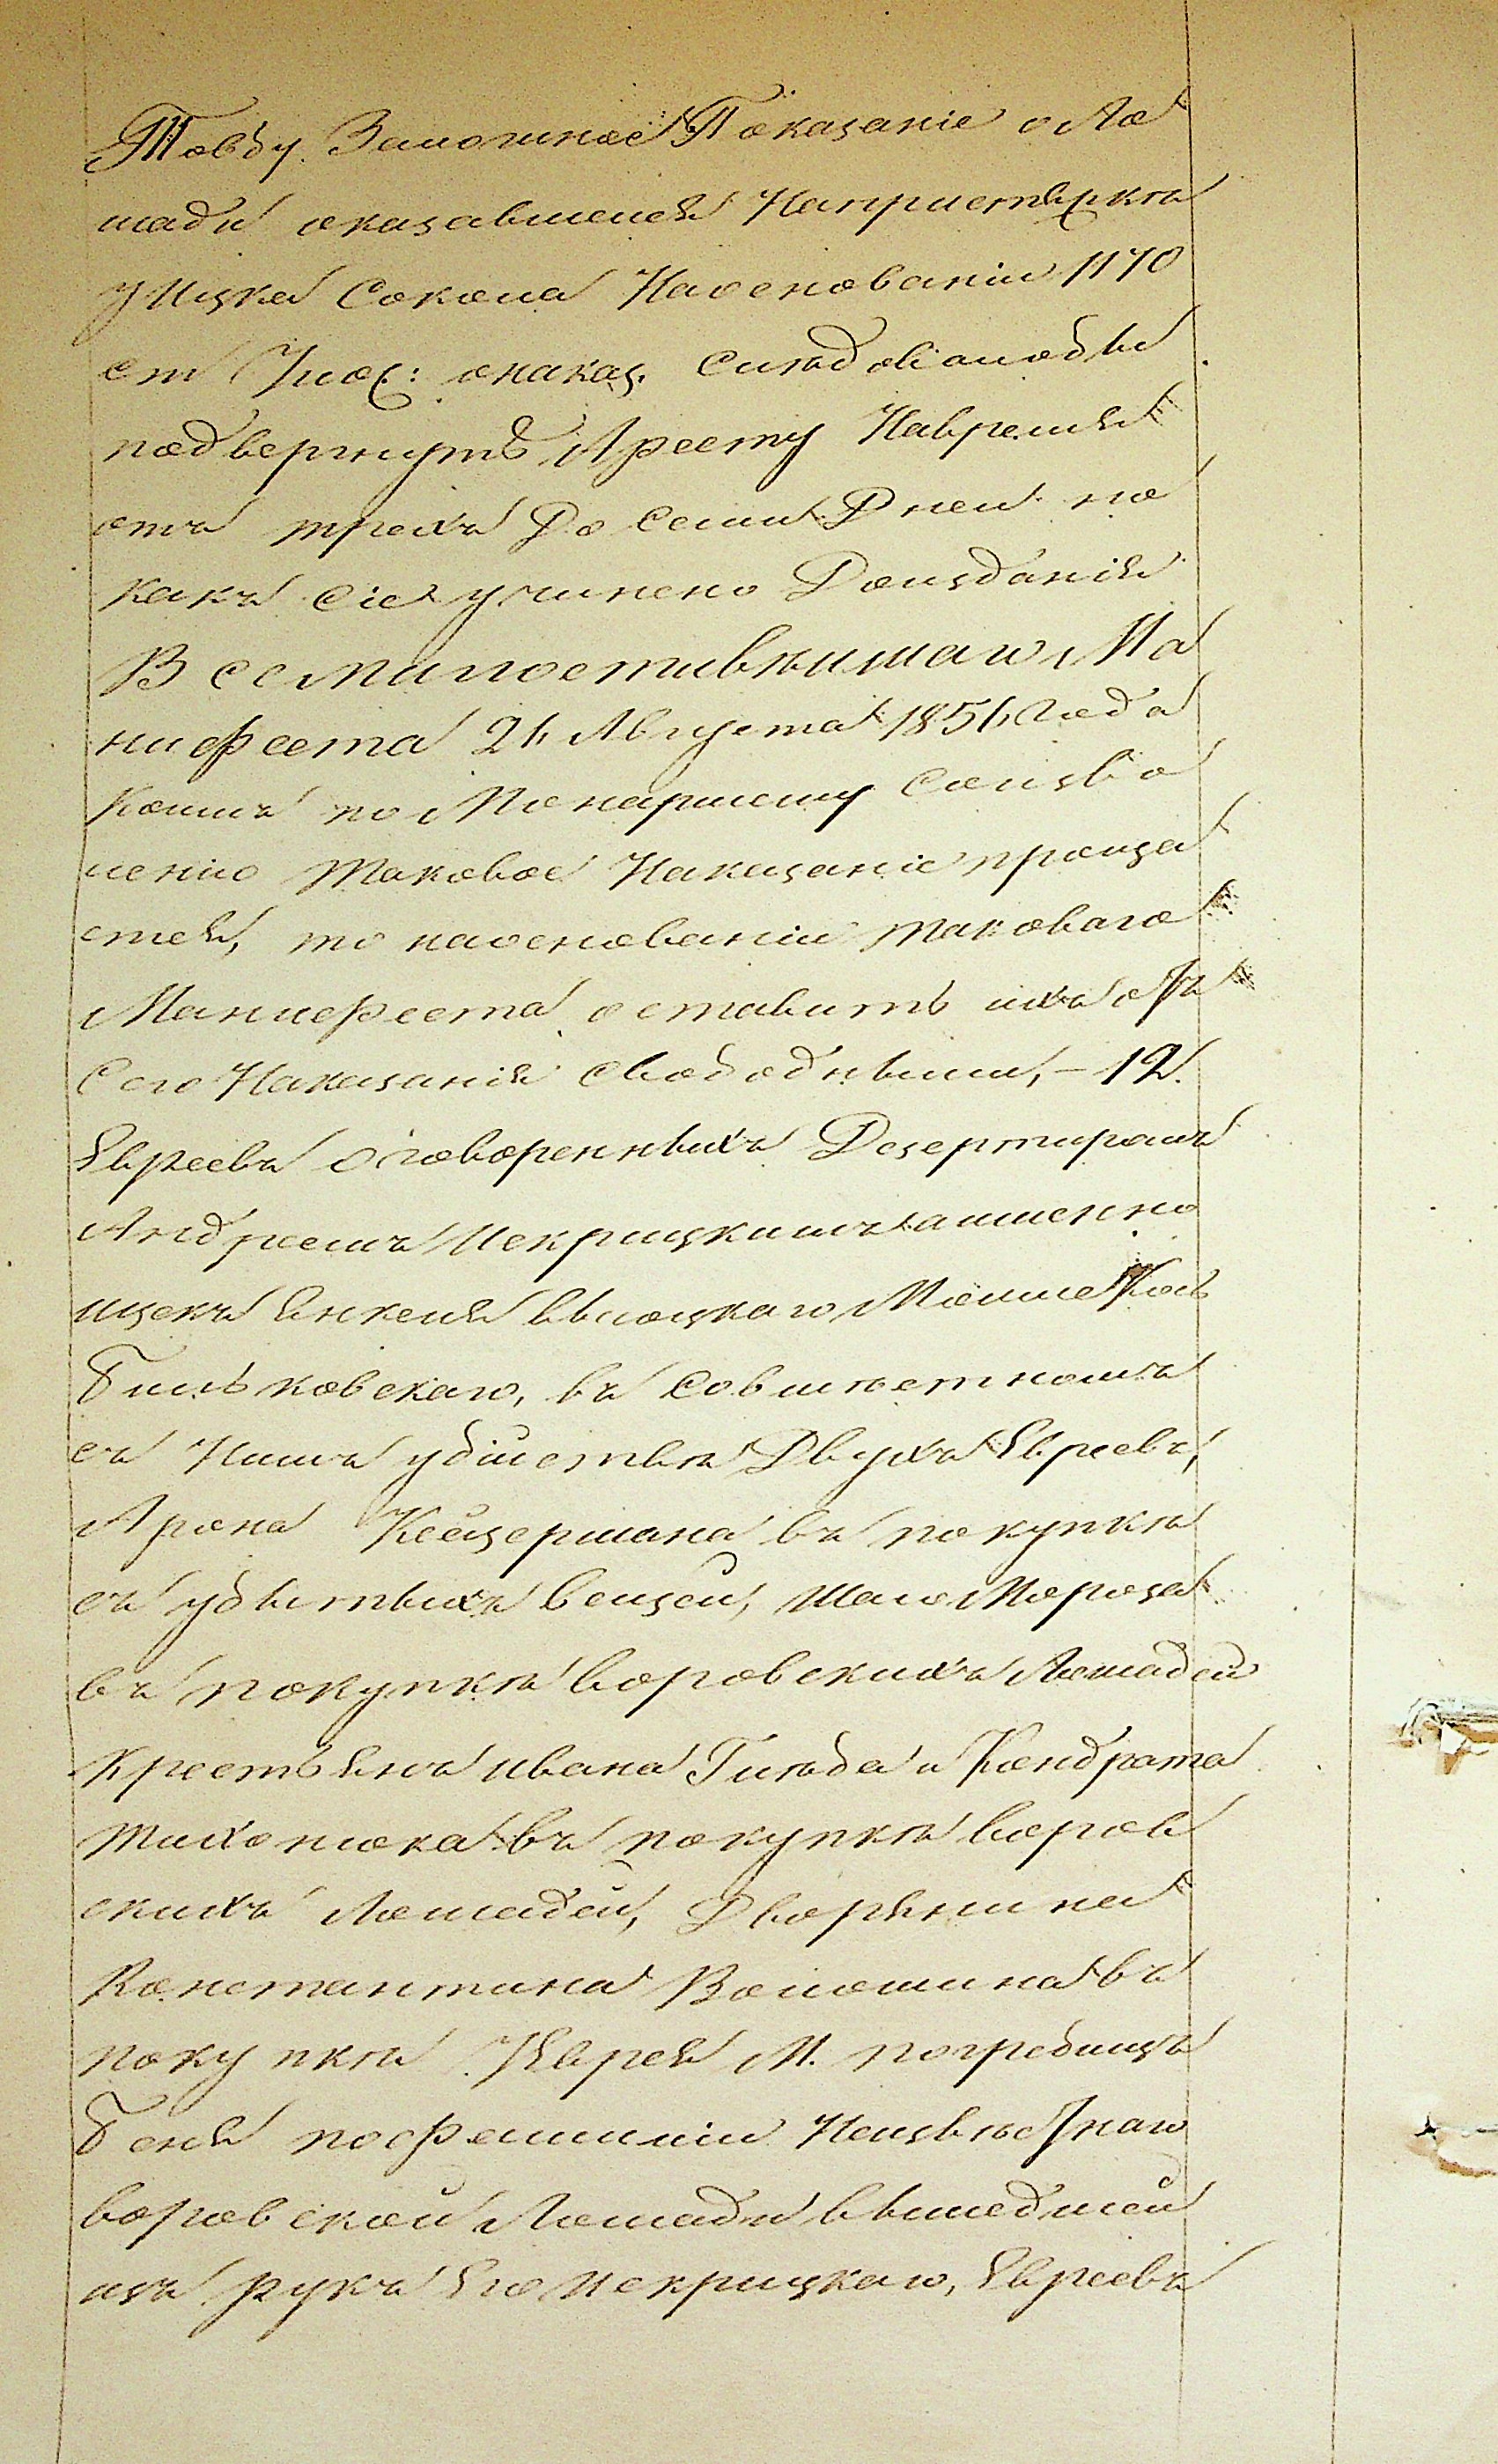 Товду. Заложное Показаніе о Ло
шади оказавшейся Напристяжкѣ
у Ицка Сокола На основаніи 1170
ст Улож: о наказ. Слѣдовалобы
подвергнуть Аресту На время
отъ трехъ До Семи Дней но
какъ Сіе учинено До изданія
Всемилостивѣйшаго Ма
нифеста 26 Августа 1856 года
Коимъ по Монаршему Соизво
ленію таковое Наказаніе проща
ется, то на основаніи таковаго
Манифеста оставить ихъ отъ
Сего Наказанія Свободными, – 12.
Евреевъ оговоренныхъ Дезертиромъ
Андреемъ Искрицкимъ а именно
Ицекъ Янкеля Высоцкаго Мошко
Бильковскаго, въ Совмѣстномъ
съ Нимъ убійствѣ Двухъ Евреевъ,
Арона Кейзермана въ покупкѣ
съ убитыхъ вещей, Шаю Мороза
въ покупкѣ воровскихъ Лошадей
крестьянъ ивана Гнѣда и Кондрата
тихонюка въ покупкѣ воров
скихъ Лошадей, Дворянина
Константина Волошина въ
покупкѣ У Еврея М. погребищъ
Беня по фамиліи Неизвѣстнаго
воровской Лошади вышедшей
изъ рукъ Его Искрицкаго, Евреевъ